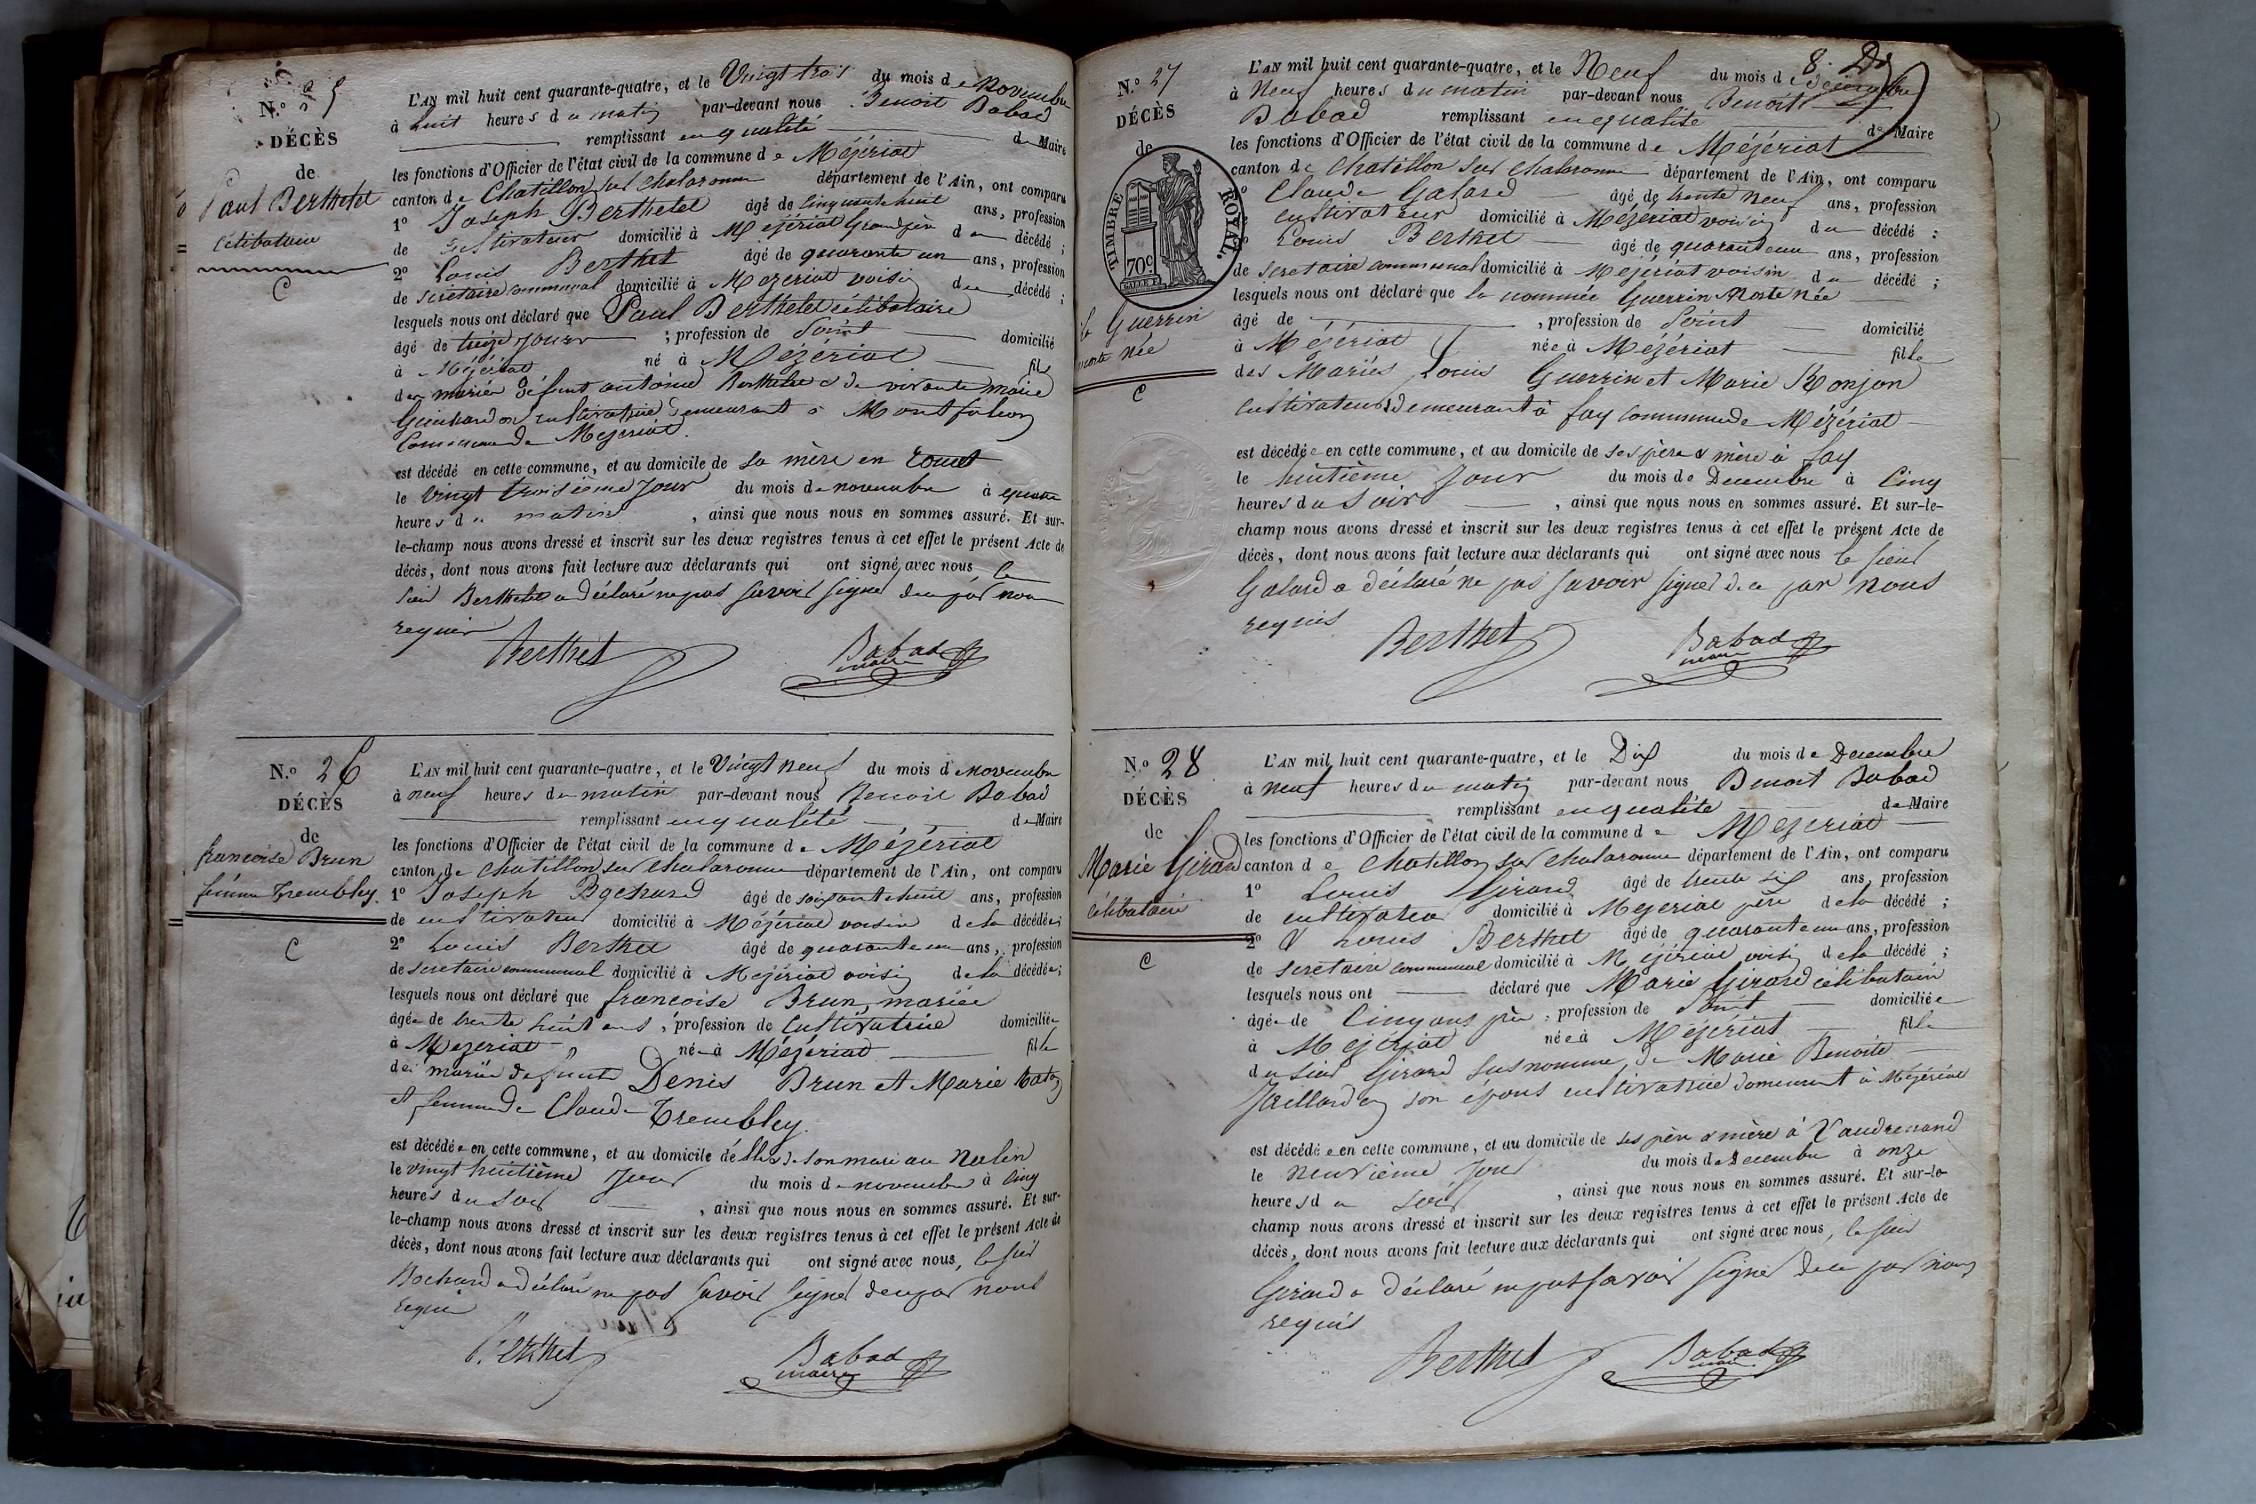 N.º 25
DÉCÈS
de
Paul Berthelet
célibataire
C
L'AN mil huit cent quarante-quatre, et le Vingt trois du mois de Novembre
à huit heures du matin par-devant nous Benoit Babad
remplissant en qualité de Maire
les fonctions d'Officier de l'état civil de la commune de Mézériat
canton de Chatillon sur Chalaronne département de l'Ain, ont comparu
1º Joseph Berthelet âgé de cinquante huit ans, profession
de cultivateur domicilié à Mézériat Grand père du décédé ;
2º Louis Berthet âgé de quarante un ans, profession
de secretaire communal domicilié à Mezeriat voisin du décédé ;
lesquels nous ont déclaré que Paul Berthelet célibataire
âgé de treize jours ; profession de Point domicilié
à Mézériat né à Mézériat fils
des mariés défunt antoine Berthelet et de vivante marie
Guichardon cultivatrice demeurant à Montfalcon
Commune de Mezeriat.
est décédé en cette commune, et au domicile de sa mère en
le vingt troisième jour du mois de novembre à quatre
heures du matin , ainsi que nous nous en sommes assuré. Et sur-
le-champ nous avons dressé et inscrit sur les deux registres tenus à cet effet le présent Acte de
décès, dont nous avons fait lecture aux déclarants qui ont signé avec nous le
sieur Berthelet a déclaré ne pas savoir signer de ce par nous
requis
Berthet Babad
maire
N.º 26
DÉCÈS
de
francoise Brun
femme Trembley.
C
L'AN mil huit cent quarante-quatre, et le Vingt neuf du mois de Novembre
à neuf heures du matin par-devant nous Benoit Babad
remplissant en qualité de Maire
les fonctions d'Officier de l'état civil de la commune de Mézériat
canton de Chatillon sur Chalaronne département de l'Ain, ont comparu
1º Joseph Bochard âgé de soixante huit ans, profession
de cultivateur domicilié à Mézériat voisin de la décédée ;
2º Louis Berthet âgé de quarante un ans, profession
de secretaire communal domicilié à Mezériat voisin de la décédée ;
lesquels nous ont déclaré que francoise Brun, mariée
âgée de trente huit ans ; profession de Cultivatrice domiciliée
à Mezeriat née à Mézériat fille
des mariés défunts Denis Brun et Marie Raton
et femme de Claude Trembley.
est décédée en cette commune, et au domicile d'elle & de son mari au
le vingt huitième jour du mois de novembre à cinq
heures du soir , ainsi que nous nous en sommes assuré. Et sur-
le-champ nous avons dressé et inscrit sur les deux registres tenus à cet effet le présent Acte de
décès, dont nous avons fait lecture aux déclarants qui ont signé avec nous, le sieur
Bochard a déclaré ne pas savoir signer de ce par nous
requis
Berthet Babad
maire
8. Dx
N.º 27
DÉCÈS
de
TIMBRE ROYAL.
70c
la Guerrin
morte née
C
L'AN mil huit cent quarante-quatre, et le Neuf du mois de Décembre
à Neuf heures du matin par-devant nous Benoit
Babad remplissant en qualité de Maire
les fonctions d'Officier de l'état civil de la commune de Mézériat
canton de Chatillon sur Chalaronne département de l'Ain, ont comparu
1º Claude Galard âgé de trente neuf ans, profession
cultivateur domicilié à Mézériat voisin du décédé :
2º Louis Berthet âgé de quarante un ans, profession
de secretaire communal domicilié à Mézériat voisin du décédé ;
lesquels nous ont déclaré que la nommée Guerrin Morte née
âgé de , profession de Point domicilié
à Mézériat née à Mézériat fille
des Mariés Louis Guerrin et Marie Ronjon
cultivateurs demeurant à fay commune de Mézériat
est décédée en cette commune, et au domicile de ses père & mère à fay
le huitième jour du mois de Decembre à Cinq
heures du Soir , ainsi que nous nous en sommes assuré. Et sur-le-
champ nous avons dressé et inscrit sur les deux registres tenus à cet effet le présent Acte de
décès, dont nous avons fait lecture aux déclarants qui ont signé avec nous le sieur
Galard a déclaré ne pas savoir signer de ce par nous
requis
Berthet Babad
maire
N.º 28
DÉCÈS
de
Marie Girard
célibataire
C
L'AN mil huit cent quarante-quatre, et le Dix du mois de Decembre
à neuf heures du matin par-devant nous Benoit Babad
remplissant en qualité de Maire
les fonctions d'Officier de l'état civil de la commune de Mezeriat
canton de Chatillon sur Chalaronne département de l'Ain, ont comparu
1º Louis Girard âgé de trente six ans, profession
de cultivateur domicilié à Mezeriat père de la décédé ;
2º Louis Berthet âgé de quarante un ans, profession
de secretaire communal domicilié à Mézériat voisin de la décédé ;
lesquels nous ont déclaré que Marie Girard célibataire
âgée de Cinq ans ; profession de Point domiciliée
à Mézériat née à Mézériat fille
du sieur Girard susnommé, de Marie Benoite
Jaillard son épouse cultivatrice demeurant à Mézériat
est décédée en cette commune, et au domicile de ses père & mère à Vaudrenand
le neuvième jour du mois de Decembre à onze
heures du soir , ainsi que nous nous en sommes assuré. Et sur-le-
champ nous avons dressé et inscrit sur les deux registres tenus à cet effet le présent Acte de
décès, dont nous avons fait lecture aux déclarants qui ont signé avec nous, le sieur
Girard a déclaré ne pas savoir signer de ce par nous
requis
Berthet Babad
maire